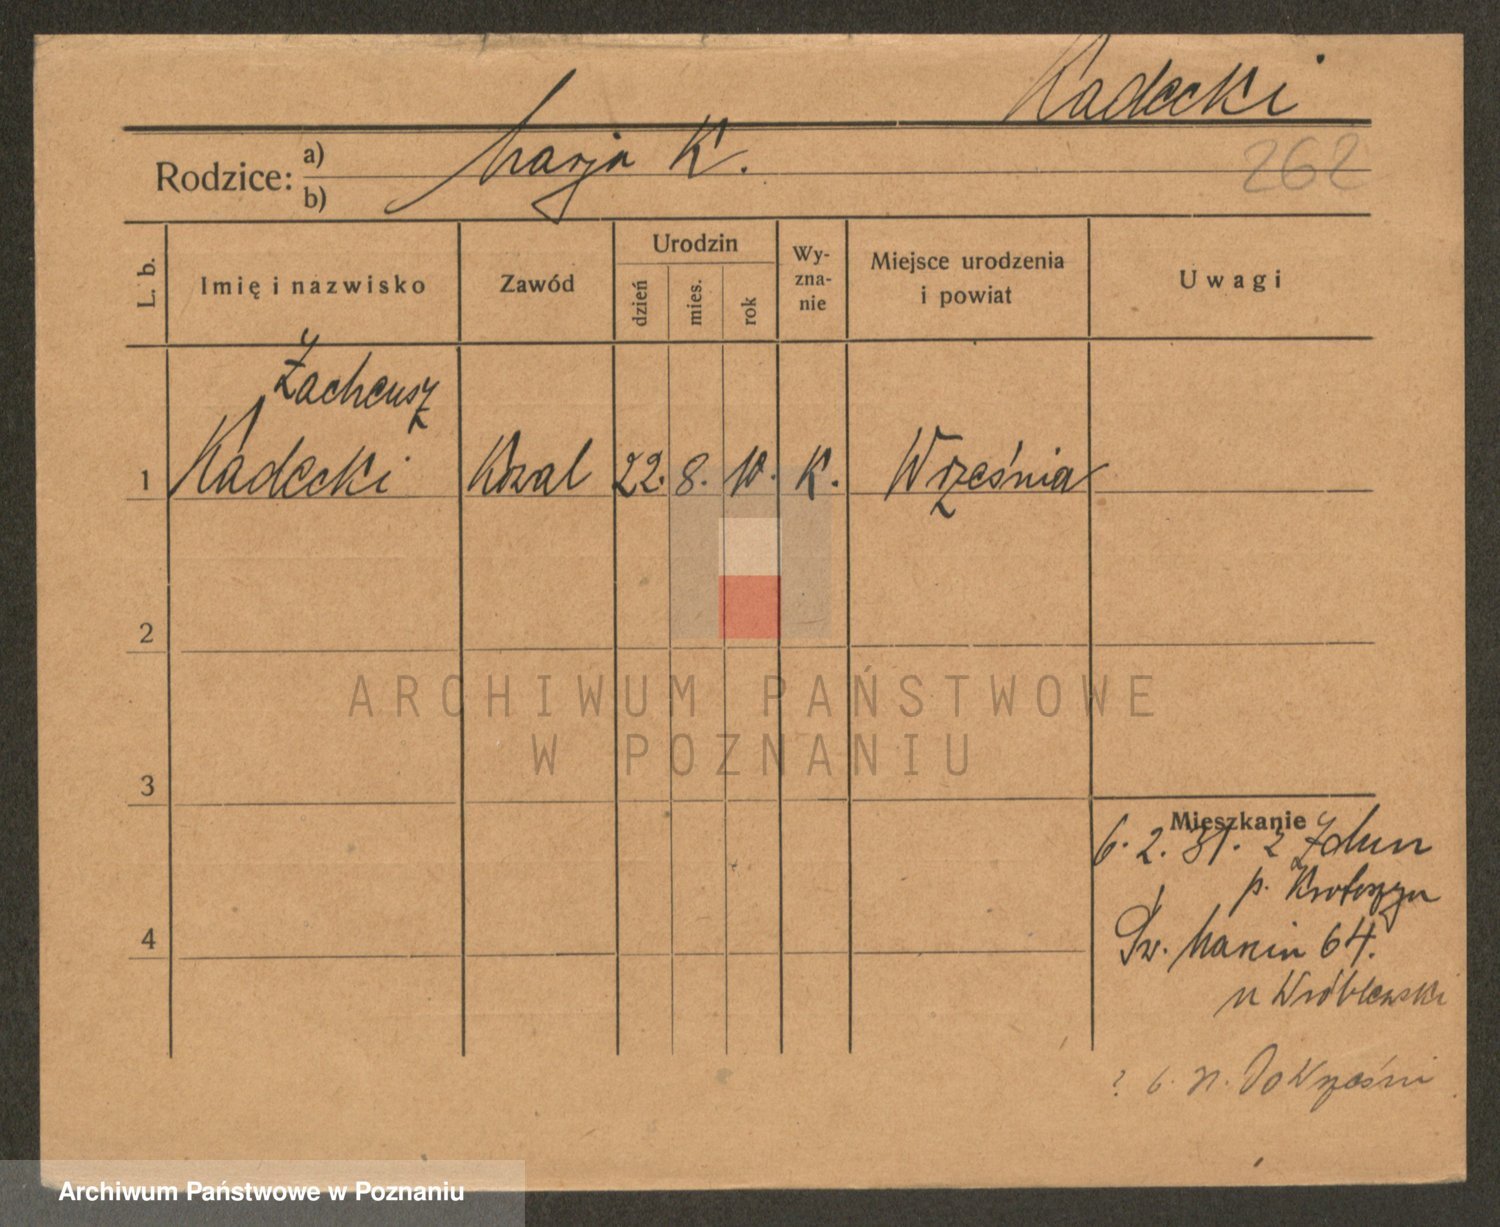 Radecki
262
Rodzice: a) Marja K.
b)
L. b.
Imię i nazwisko
Zawód
Urodzin
dzień
mies.
rok
Wy-
zna-
nie
Miejsce urodzenia
i powiat
Uwagi
Zacheusz
1 Radecki
22. 8. 10. K. Września
2
3
4
ARCHIWUM PAŃSTWOWE
W POZNANIU
Mieszkanie
6. 2. 31. z Zdun
p. Krotoszyn
Św. Marcin 64.
u Wróblewski
Do Wrześni
Archiwum Państwowe w Poznaniu